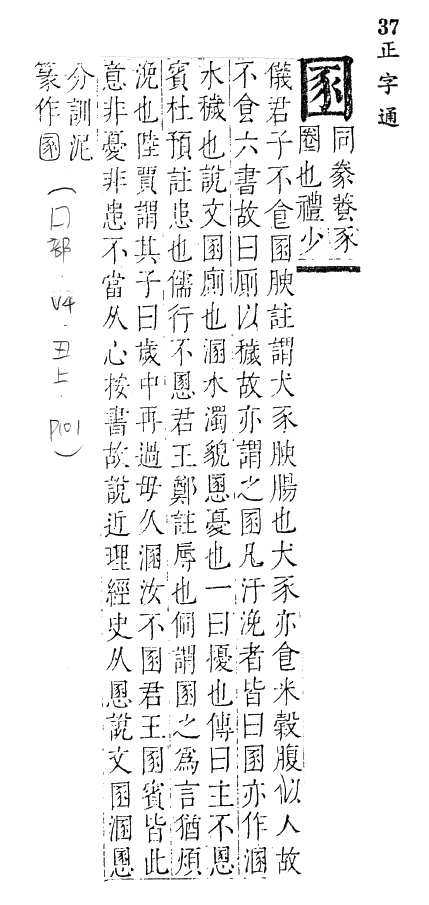 37正字通
圂
同豢養豕
圈也禮少
儀君子不食圂腴註謂犬豕腴腸也犬豕亦食米穀腹似人故
不食六書故曰厠以穢故亦謂之圂凡汙浼者皆曰圂亦作溷
水穢也說文圂廁也溷水濁貌慁憂也一曰擾也傳曰主不慁
賓杜預註患也儒行不慁君王鄭註辱也侗謂圂之爲言猶煩
浼也陸賈謂其子曰歲中再過毋久溷汝不圂君王圂賓皆此
意非憂非患不當从心按書故說近理經史从慁說文圂溷慁
分訓泥
篆作圂
(口部.V4.丑上.P101)